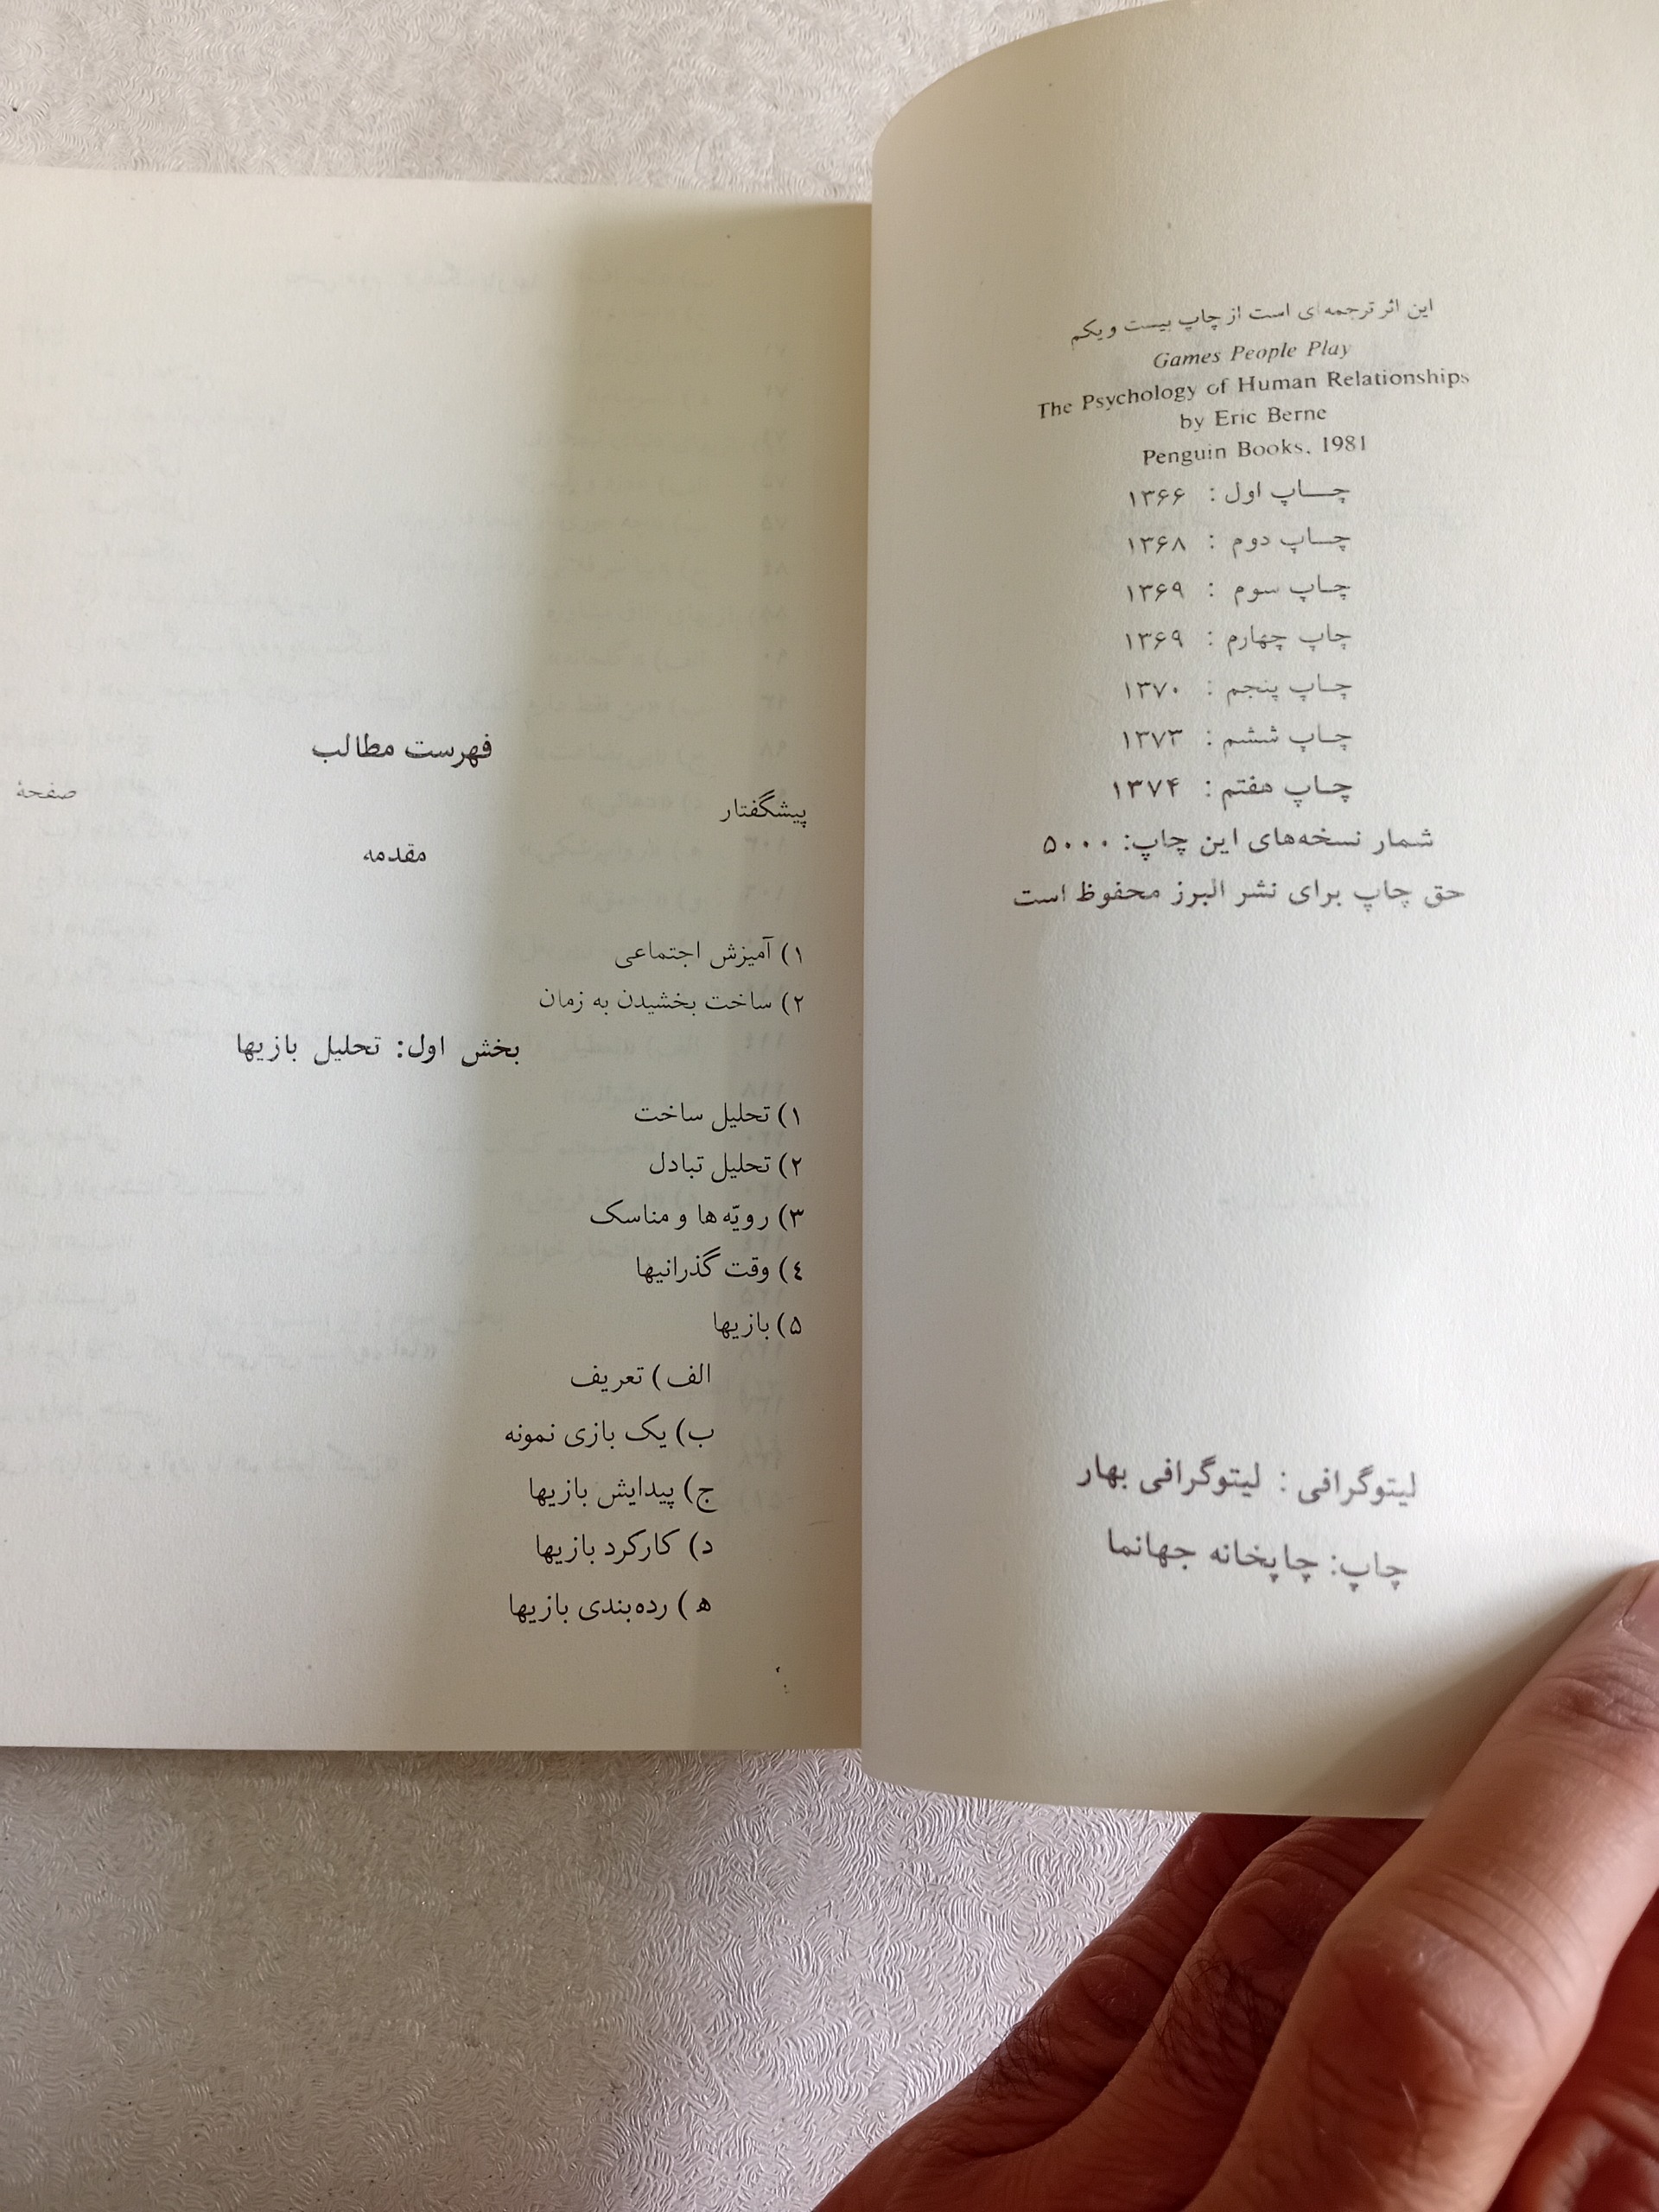 این اثر ترجمه‌ای است از چاپ بیست و یکم
Games People Play
The Psychology of Human Relationships
by Eric Berne
Penguin Books, 1981
چاپ اول : ۱۳۶۶
چاپ دوم : ۱۳۶۸
چاپ سوم : ۱۳۶۹
چاپ چهارم : ۱۳۶۹
چاپ پنجم : ۱۳۷۰
چاپ ششم : ۱۳۷۳
چاپ هفتم : ۱۳۷۴
شمار نسخه‌های این چاپ: ۵۰۰۰
حق چاپ برای نشر البرز محفوظ است
لیتوگرافی : لیتوگرافی بهار
چاپ: چاپخانه جهانما
فهرست مطالب
صفحهٔ
پیشگفتار
مقدمه
۱) آمیزش اجتماعی
۲) ساخت بخشیدن به زمان
بخش اول: تحلیل بازیها
۱) تحلیل ساخت
۲) تحلیل تبادل
۳) رویّه ها و مناسک
٤) وقت گذرانیها
۵) بازیها
الف) تعریف
ب) یک بازی نمونه
ج) پیدایش بازیها
د) کارکرد بازیها
ه) رده‌بندی بازیها